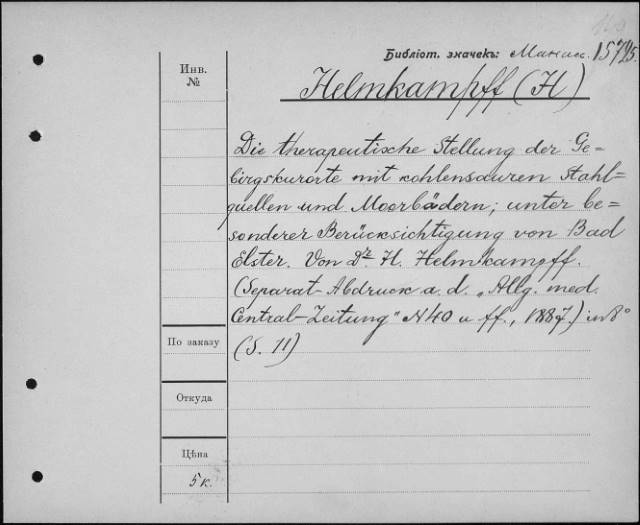 Библіот. значекъ:
Инв.
№
Helmkampff (H)
Die therapeutische Stellung der Ge=
birgskurorte mit kohlensauren Stahl=
quellen und Moorbädern; unter be=
sonderer Berücksichtigung von Bad
Elster. Von Dr. H. Helmkampff.
(Separat-Abdruck a. d. „Allg. med.
Central-Zeitung" N 40 u ff., 1887.) in 8°
(S. 11)
По заказу
Откуда
Цѣна
5 к.